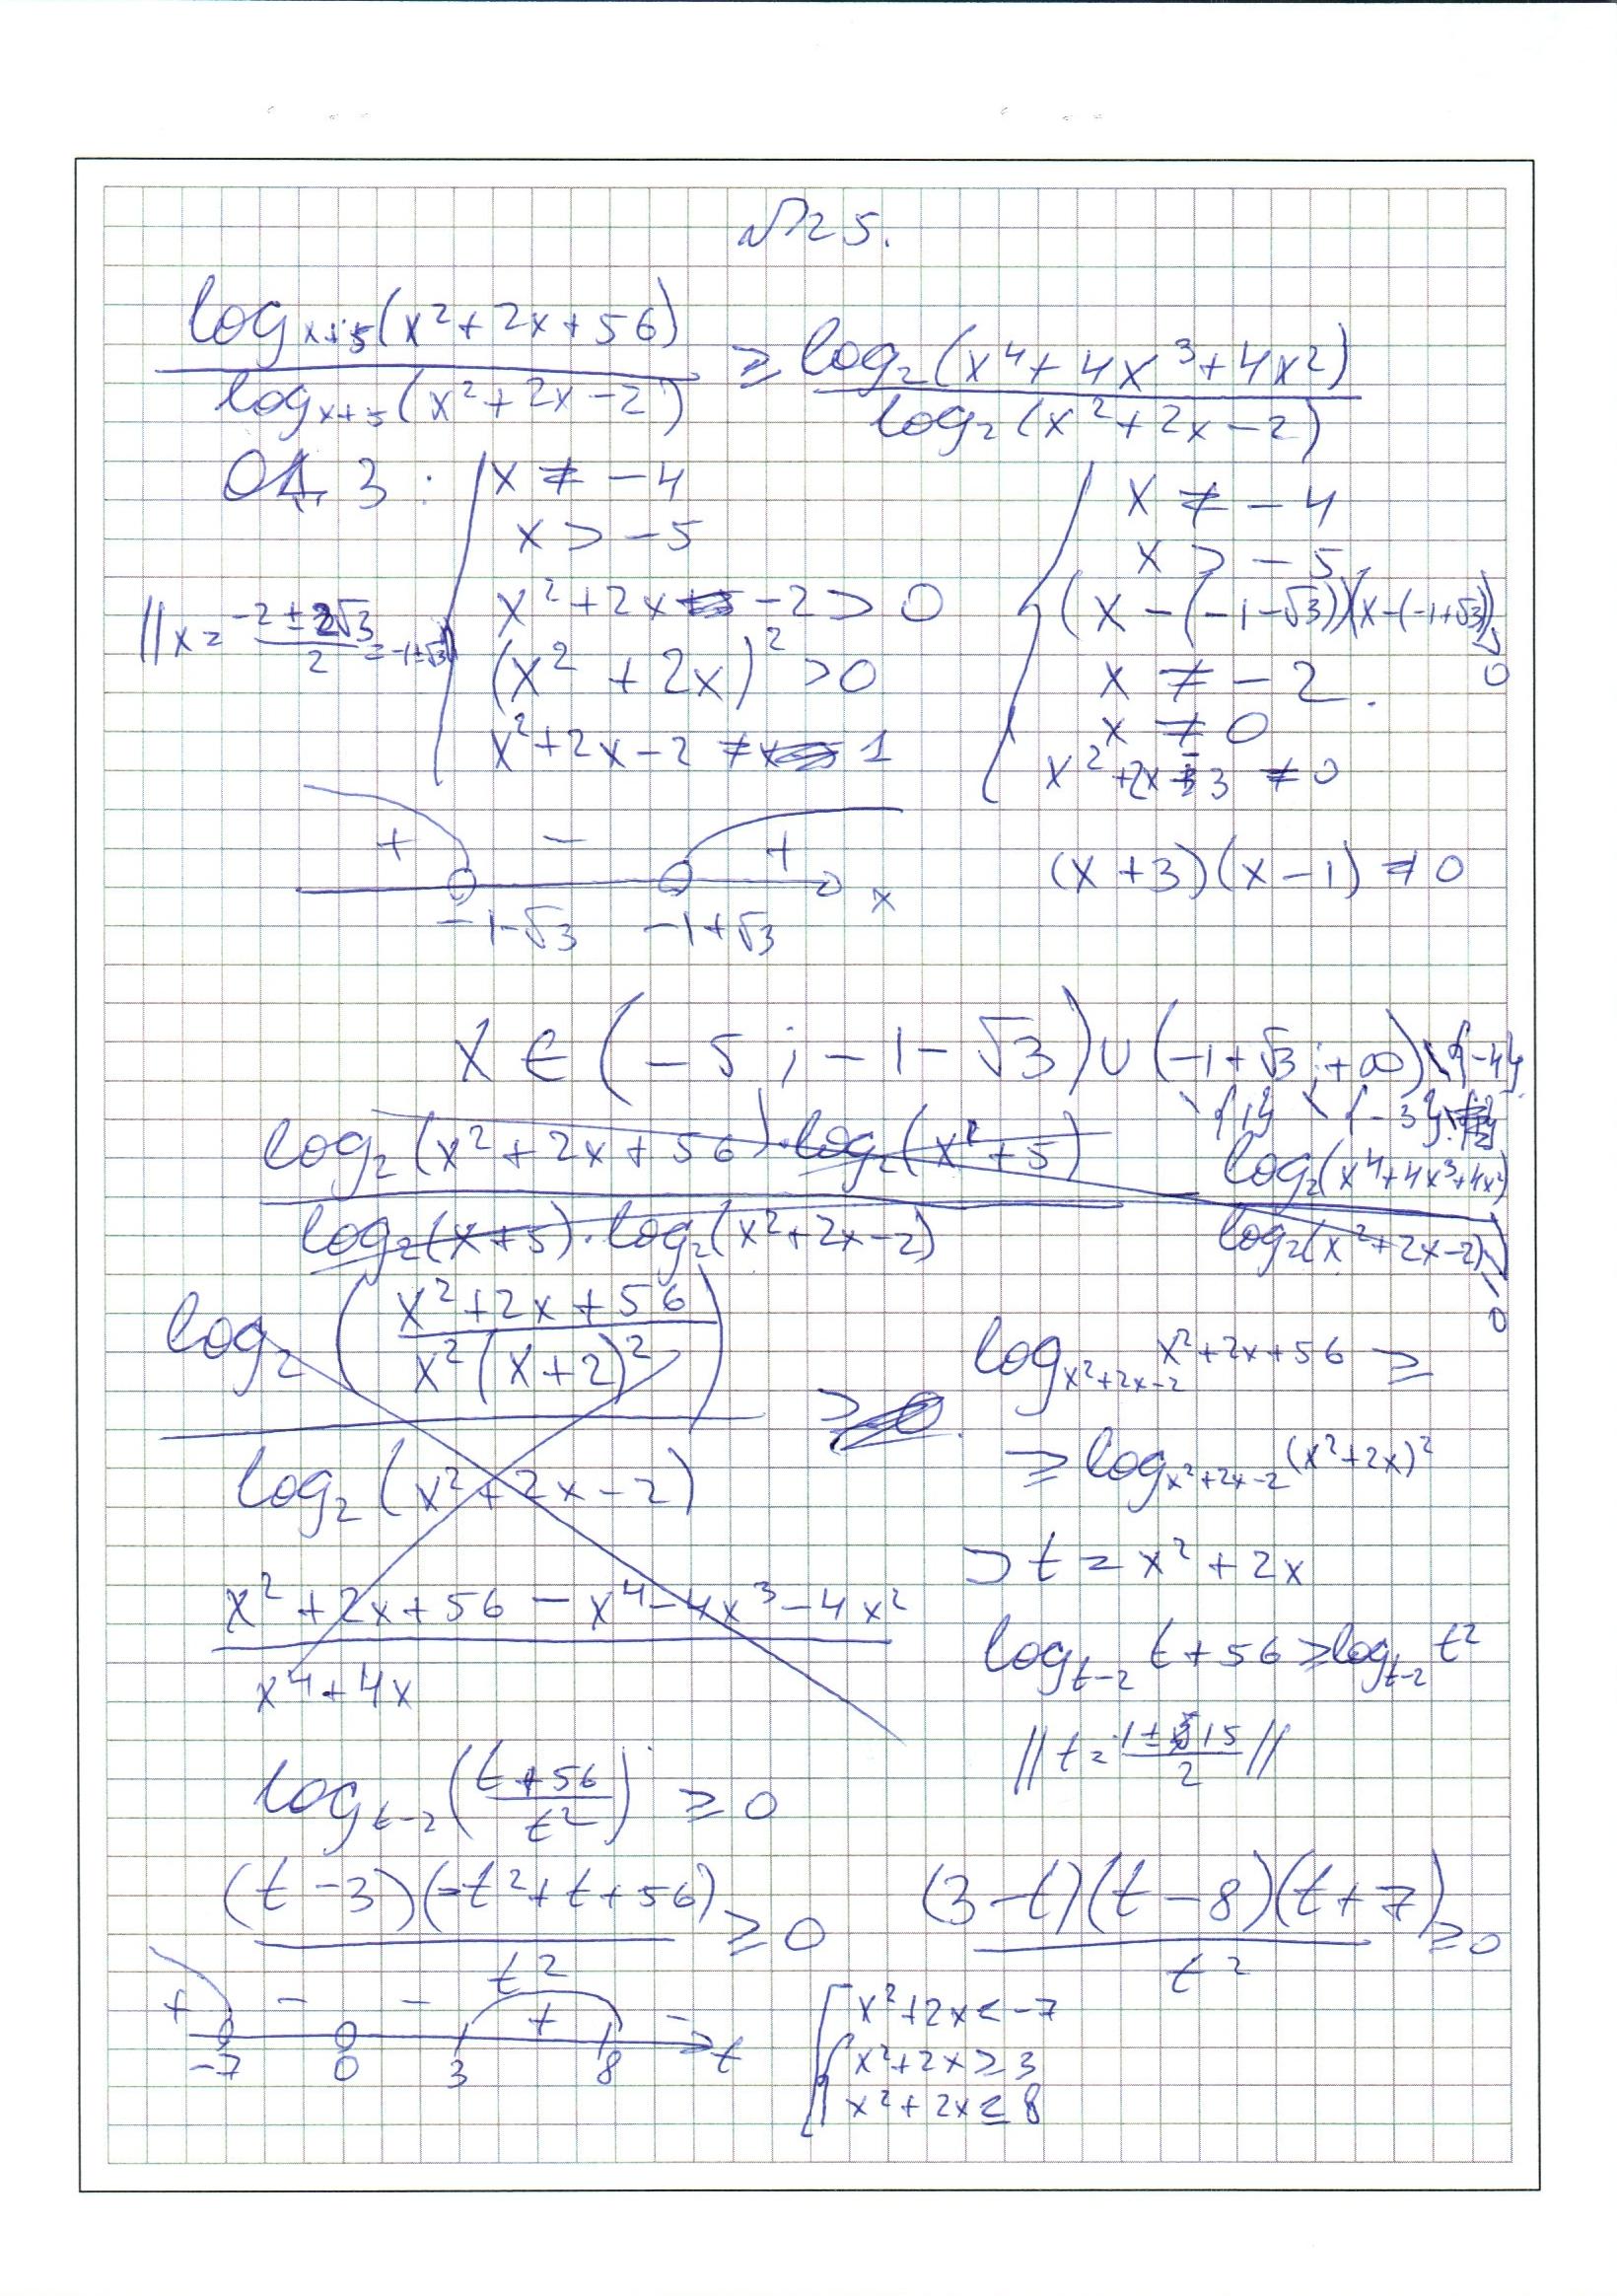 №25.
log_{x+5}(x²+2x+56) / log_{x+5}(x²+2x-2) ≥ log₂(x⁴+4x³+4x²) / log₂(x²+2x-2)
ОДЗ:
x ≠ -4
x > -5
x²+2x-2 > 0
(x²+2x)² > 0
x²+2x-2 ≠ 1
|| x = (-2±2√3)/2 = -1±√3 ||
x ≠ -4
x > -5
(x-(-1-√3))(x-(-1+√3)) > 0
x ≠ -2
x ≠ 0
x²+2x-3 ≠ 0
(x+3)(x-1) ≠ 0
+ - + x
-1-√3 -1+√3
x ∈ (-5; -1-√3) ∪ (-1+√3; +∞) \ {-4}
\ {1} \ {-3}
log₂(x²+2x+56)·log₂(x²+5) / log₂(x+5)·log₂(x²+2x-2) - log₂(x⁴+4x³+4x²) / log₂(x²+2x-2) ≥ 0
log₂((x²+2x+56) / x²(x+2)²) / log₂(x²+2x-2) ≥ 0
(x²+2x+56-x⁴-4x³-4x²) / (x⁴+4x)
log_{x²+2x-2} x²+2x+56 ≥
≥ log_{x²+2x-2} (x²+2x)²
⊃ t = x²+2x
log_{t-2} t+56 ≥ log_{t-2} t²
|| t = (1±15)/2 ||
log_{t-2}((t+56)/t²) ≥ 0
(t-3)(-t²+t+56) / t² ≥ 0
(3-t)(t-8)(t+7) / t² ≥ 0
+ - - + - t
-7 0 3 8
x²+2x ≤ -7
x²+2x ≥ 3
x²+2x ≤ 8